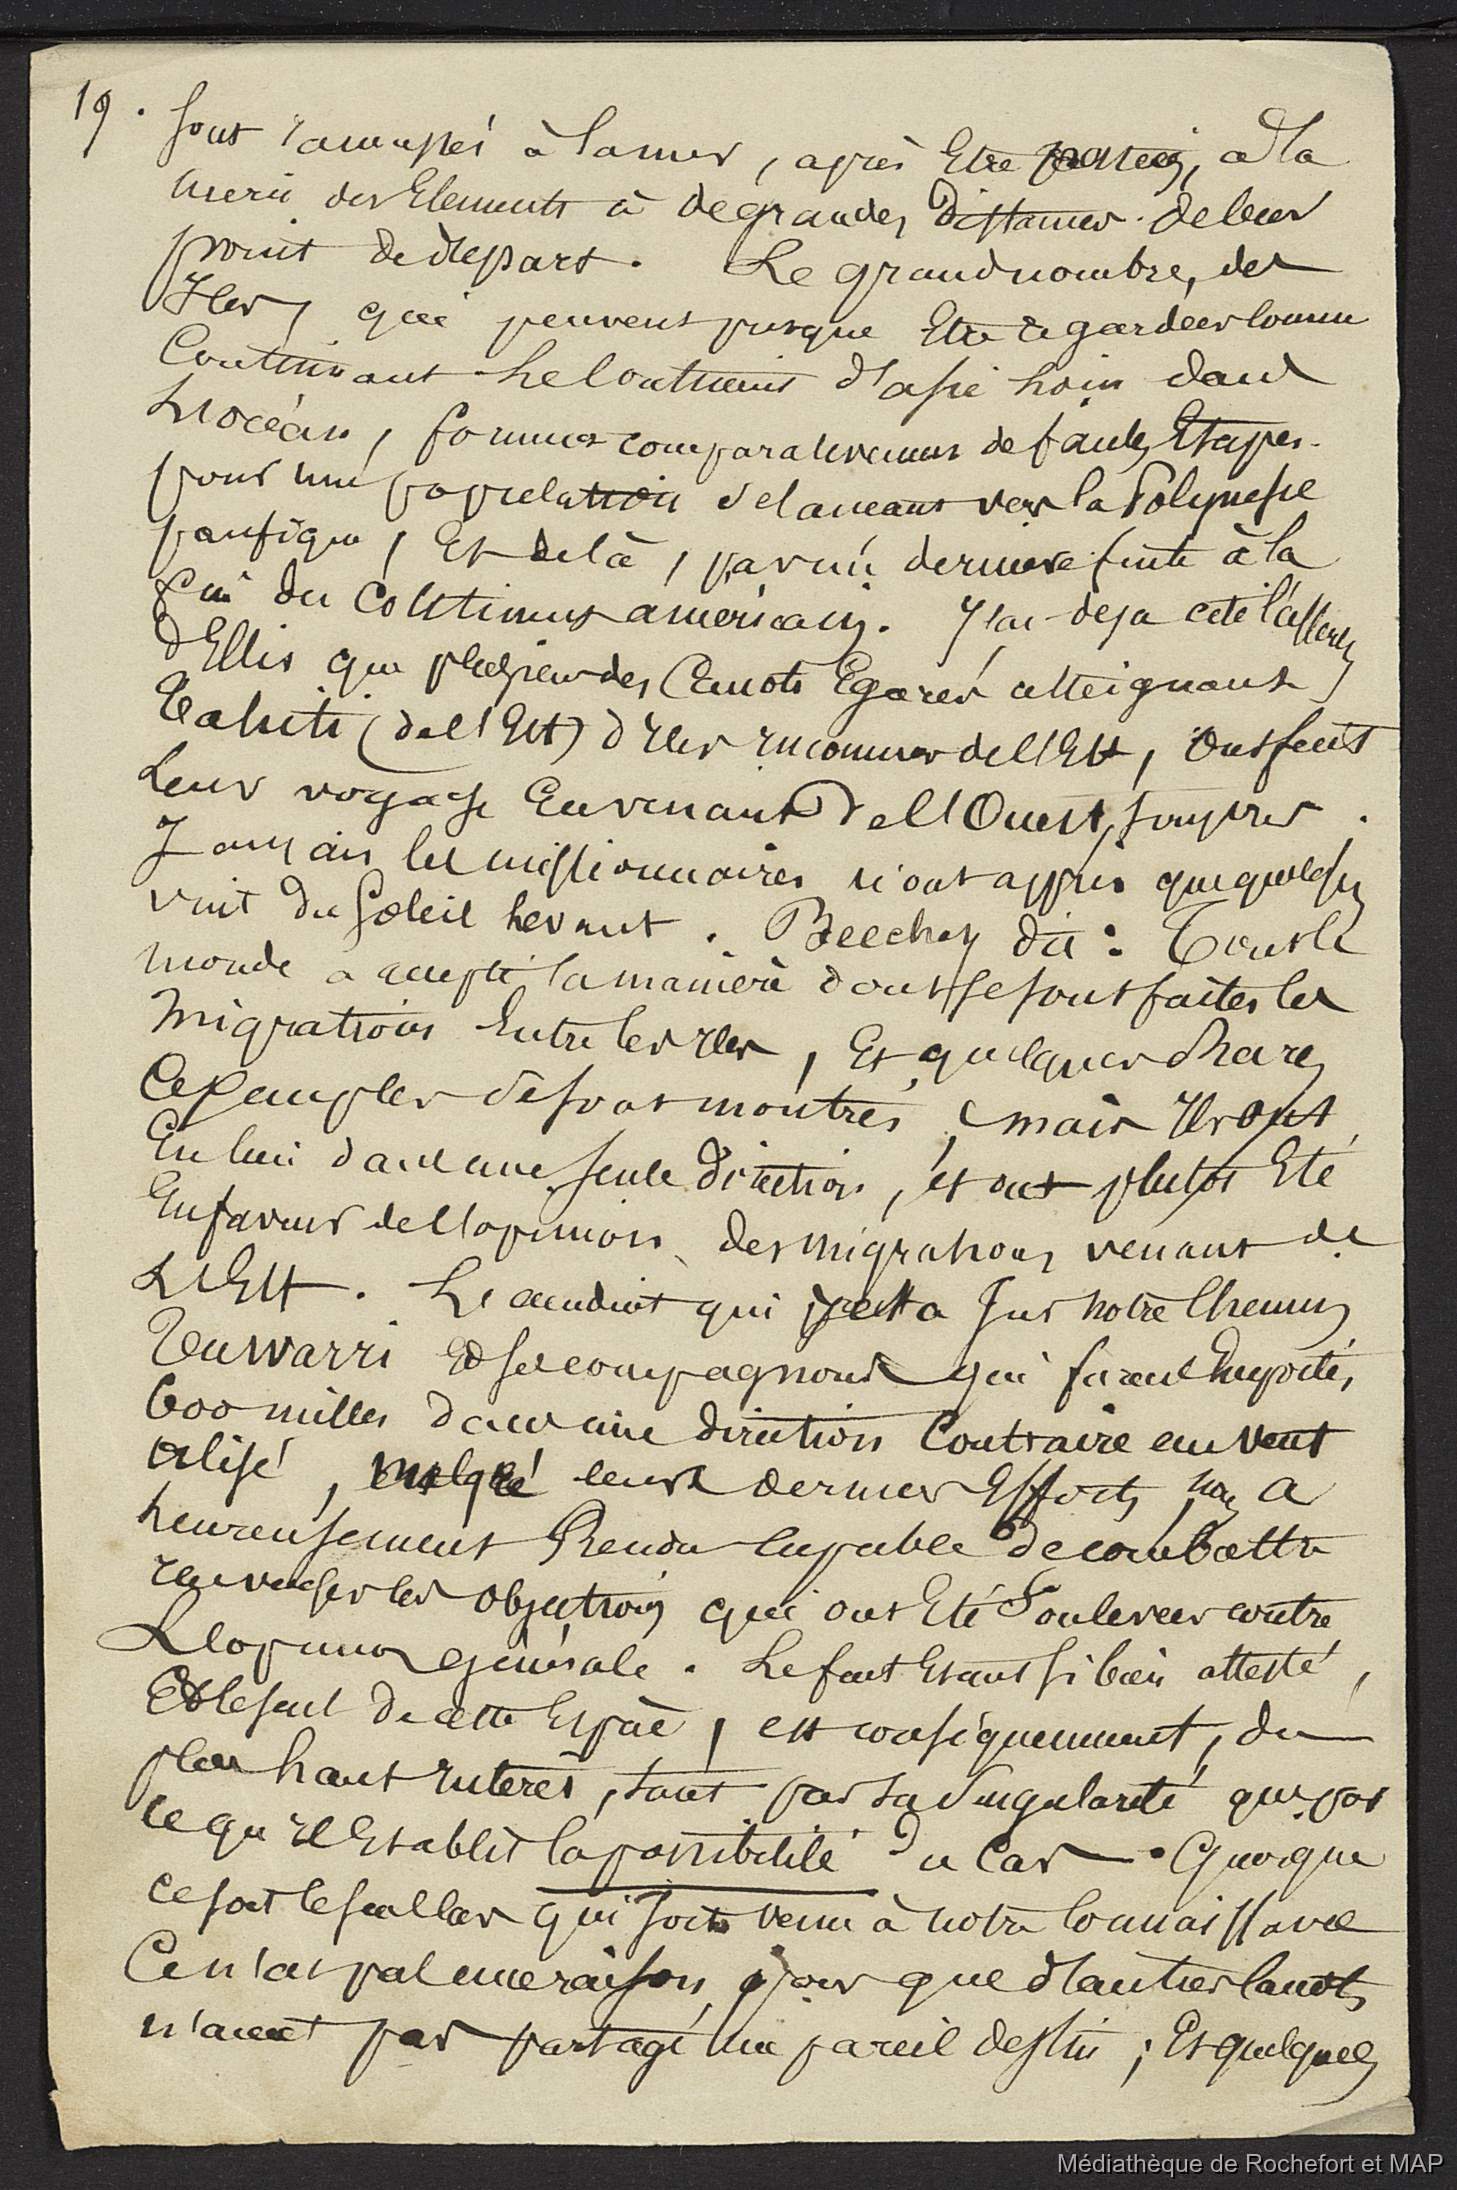 19. sont ramassés à la mer, après Etre partis, à la
merci des Elements à de grandes Distances de leur
point de départ. Le grand nombre, des
Iles, qui peuvent presque Etre regardées comme
Continuant Le Continent d'asie Loin dans
L'océan, forment comparativement de faciles Etapes
pour une population s'elançant vers la Polynesie
pacifique, Et de là, par une derniere fuite à la
fin du Continent américain. J'ai deja cité
d'Ellis que plusieurs des Canots Egarés atteignant
Tahiti (de l'Est) d'Iles inconnues de l'Est, ont fait
Leur voyage En venant De l'Ouest,
Jamais les missionnaires n'ont appris que quelqu'un
vint du Soleil Levant. Beechey dit : Tout le
monde a accepté la manière dont se sont faites les
Migrations Entre les Iles, Et quelques Rares
Exemples se sont montrés, mais Ils ont
Eu lieu dans une seule Direction, et ont plutot Eté
En faveur de l'opinion des migrations venant de
L'Est. L'accident qui jeta sur notre Chemin
Tuwarri Et ses compagnons qui furent Emportés,
600 milles dans une direction Contraire au vent
alisé, malgré leurs derniers Efforts, nous a
heureusement Rendu capable de combattre
renverser les objections qui ont Eté Soulevées contre
L'opinion générale. Le fait Etant si bien attesté,
Et le seul De cette Espèce, est conséquemment, du
plus haut Interêt, tant par sa singularité que par
ce qu'il Etablit la possibilité Du Cas. Quoique
ce soit le seul cas qui soit venu à notre Connaissance
Ce n'est pas une raison pour que d'autres Canots
n'aient pas partagé un pareil destin ; Et quelques
Médiathèque de Rochefort et MAP